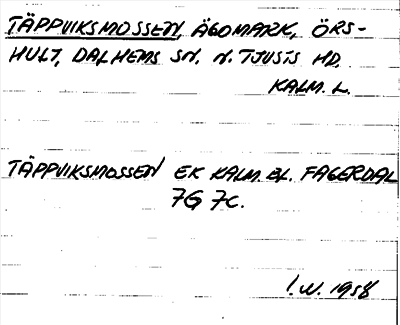 TÄPPVIKSMOSSEN, ÄGOMARK, ÖRS-
HULT, DALHEMS SN. N. TJUSTS HD.
KALM. L.
TÄPPVIKSMOSSEN EK KALM. BL. FAGERDAL
7G 7C.
I.W. 1958